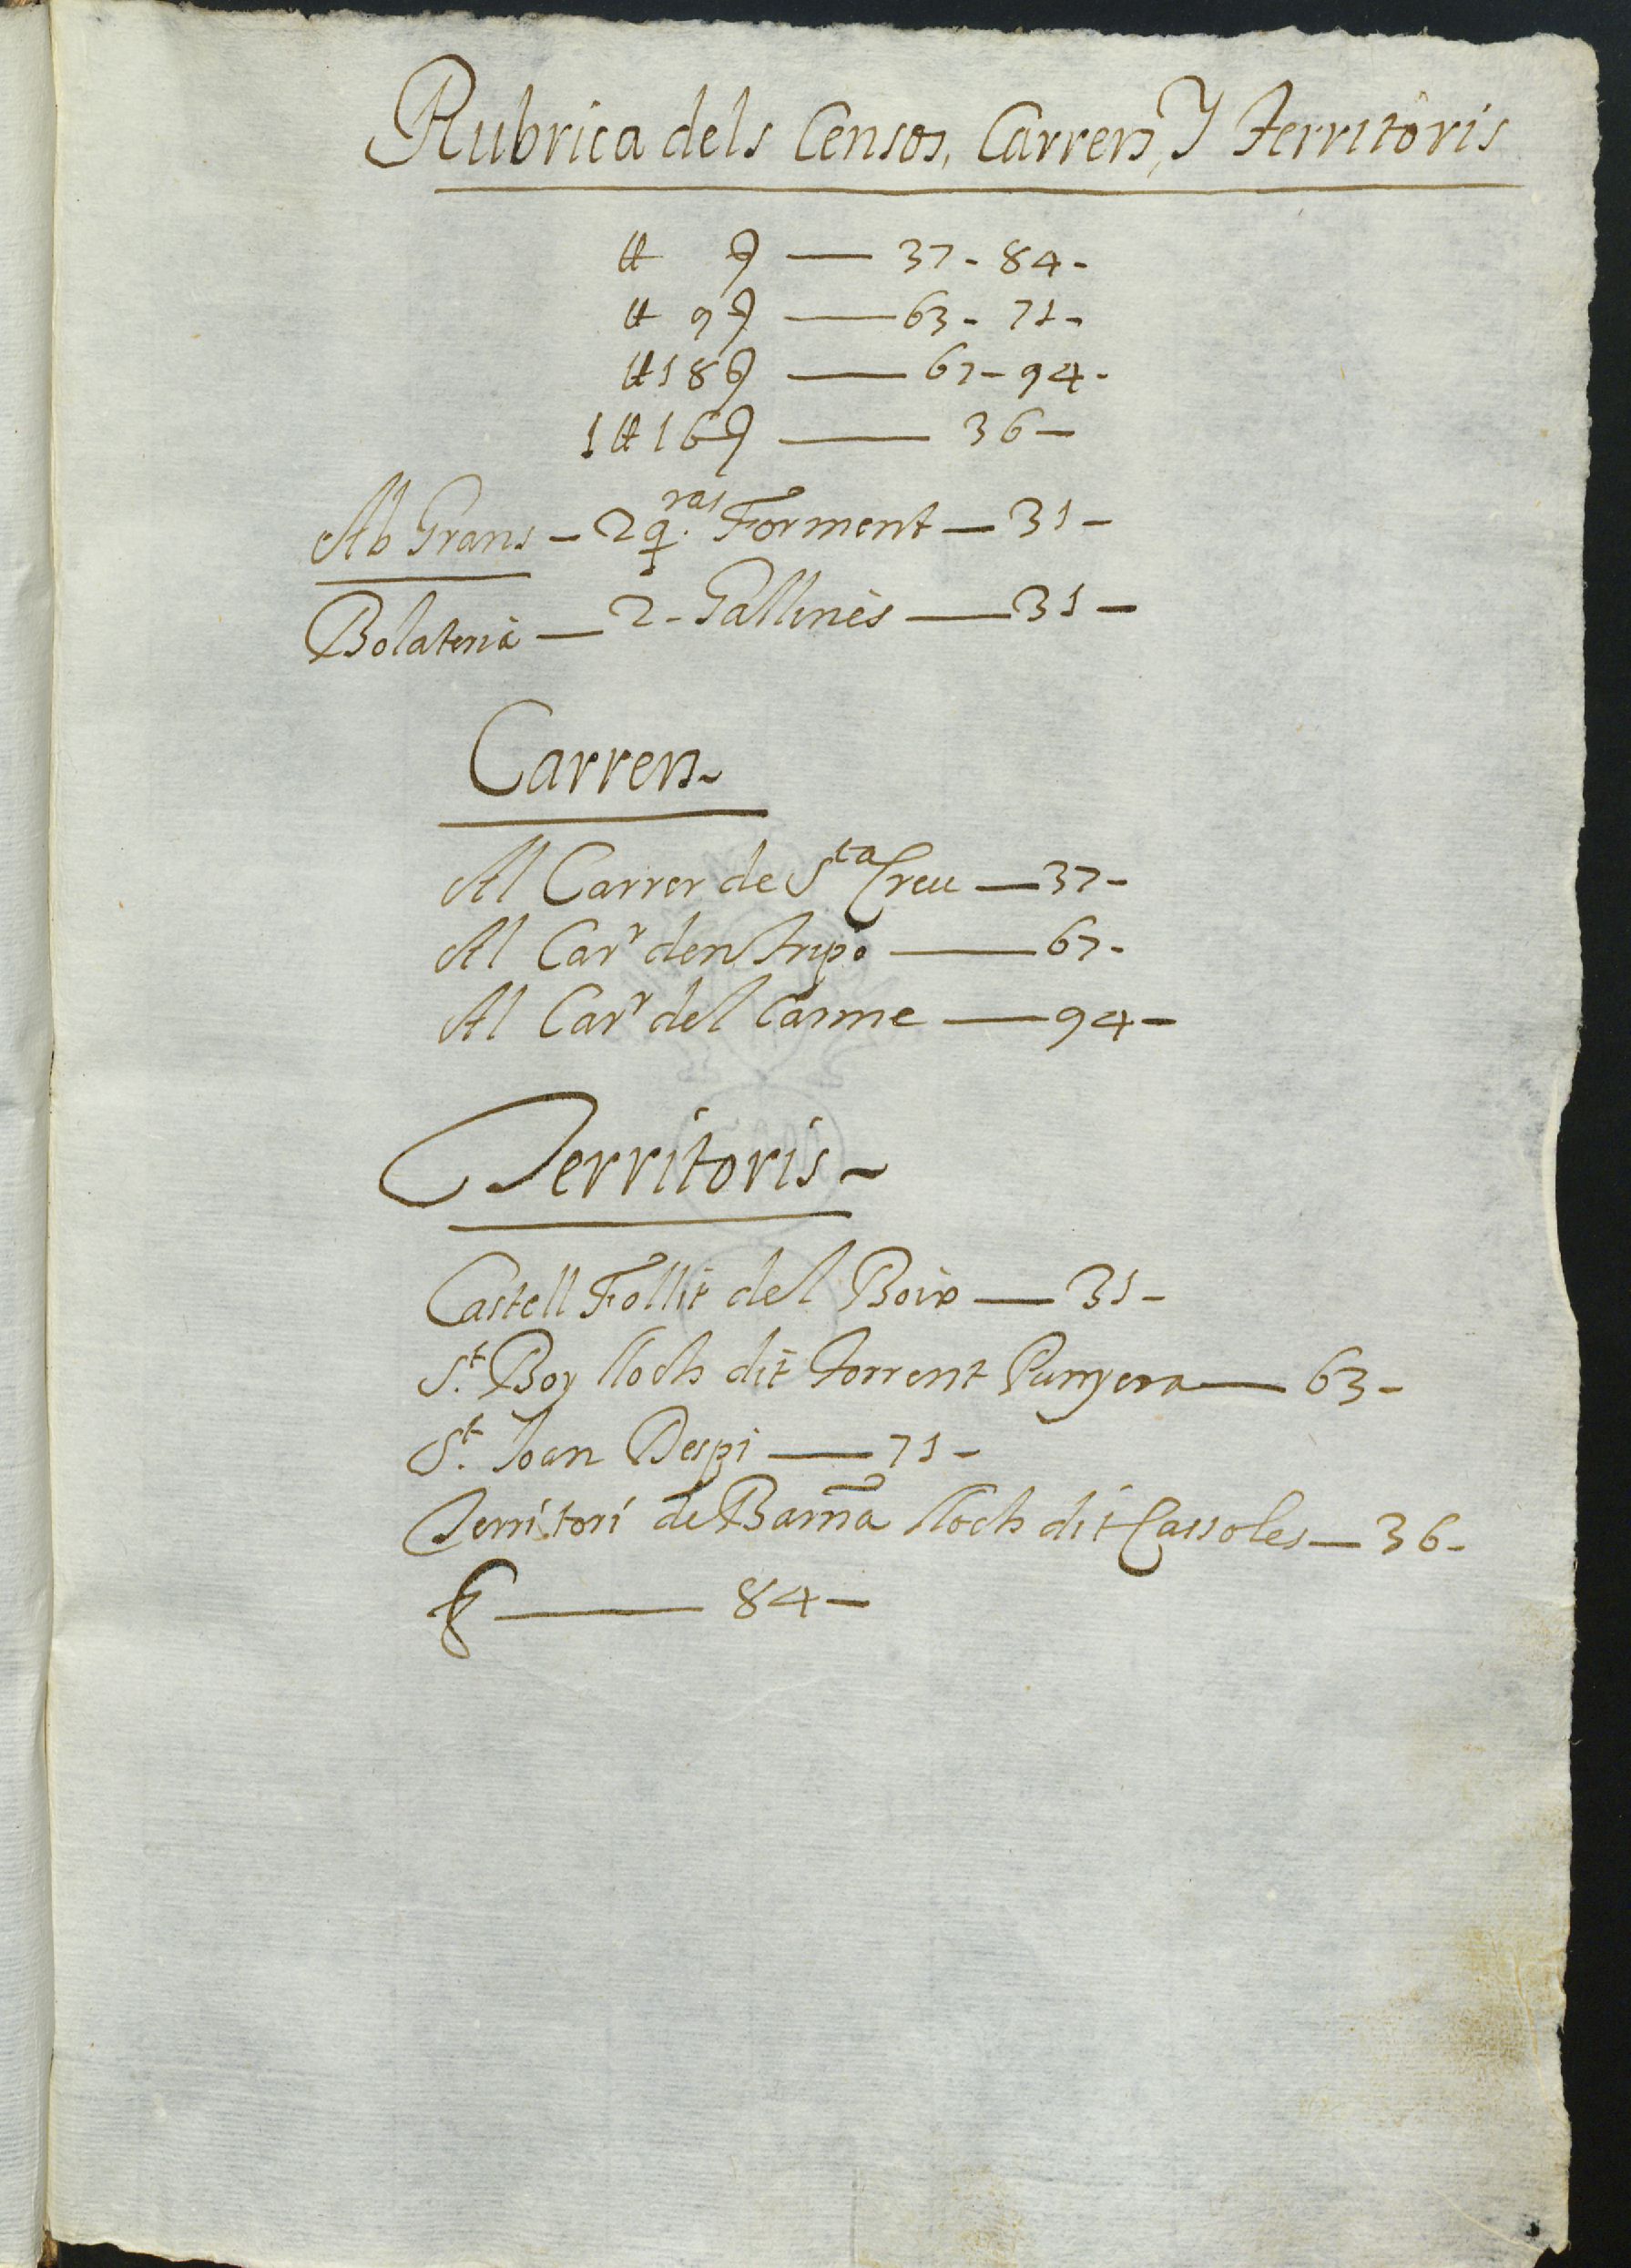 Rubrica dels Censos, Carrers, Y territoris
₶ ẟ — 37 - 84 -
₶ 9 ẟ — 63 - 71 -
₶ 18 ẟ — 67 - 94 -
1 ₶ 16 ẟ — 36 -
Ab Grans - 2 q.ras Forment - 31 -
Bolateria - 2 - Gallines - 31 -
Carrers ~
Al Carrer de Sta Creu - 37 -
Al Carr den Tripo - 67 -
Al Carr del Carme - 94 -
Territoris ~
Castell Follit del Boix - 31 -
St. Boy lloch dit torrent Punyera - 63 -
St. Joan Despi - 71 -
Territori de Barña lloch dit Cassoles - 36 -
- 84 -